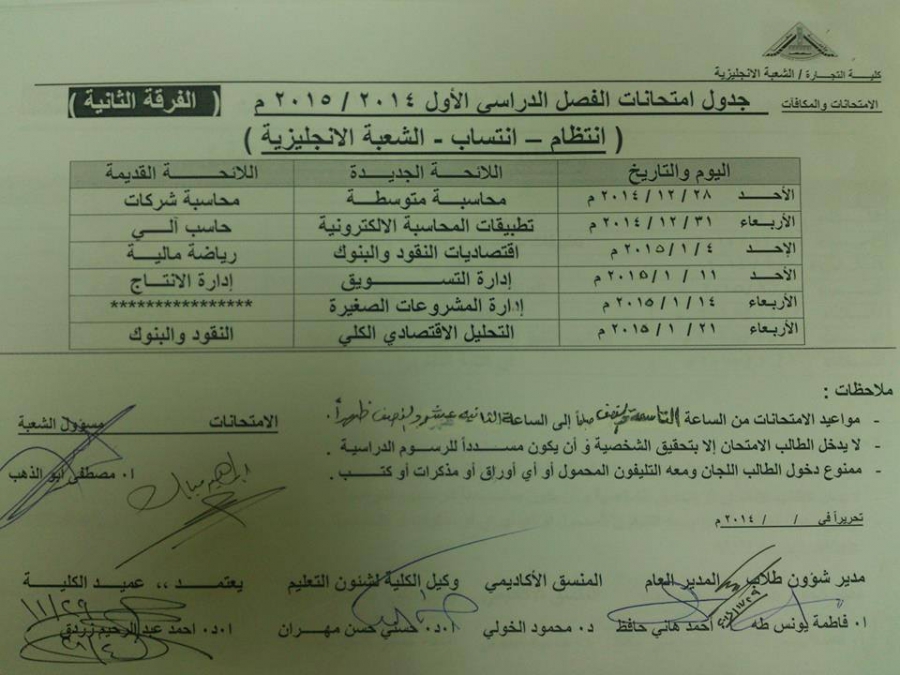 كليـــة التجـــارة / الشعبة الانجليزية
الامتحانات والمكافآت
جدول امتحانات الفصل الدراسى الأول ٢٠١٤ / ٢٠١٥ م ( الفرقة الثانية )
( انتظام – انتساب - الشعبة الانجليزية )
اليوم والتاريخ اللائحـــة الجديـــدة اللائحـــة القديمة
الأحـــد ٢٨ / ١٢ / ٢٠١٤ م محاسبـــة متوسطة محاسبة شركات
الأربعاء ٣١ / ١٢ / ٢٠١٤ م تطبيقات المحاسبة الالكترونية حاسب آلـــي
الإحـــد ٤ / ١ / ٢٠١٥ م اقتصاديات النقود والبنوك رياضة ماليـــة
الأحـــد ١١ / ١ / ٢٠١٥ م إدارة التســـويق إدارة الانتاج
الأربعاء ١٤ / ١ / ٢٠١٥ م إدارة المشروعات الصغيرة ****************
الأربعاء ٢١ / ١ / ٢٠١٥ م التحليل الاقتصادي الكلي النقود والبنوك
ملاحظات :
- مواعيد الامتحانات من الساعة التاسعة والنصف صباحاً إلى الساعة الثانيه عشر والنصف ظهراً .
- لا يدخل الطالب الامتحان إلا بتحقيق الشخصية و أن يكون مســـدداً للرسوم الدراسية .
- ممنوع دخول الطالب اللجان ومعه التليفون المحمول أو أي أوراق أو مذكرات أو كتـــب .
الامتحانات مسؤول الشعبة
ابراهيم مبارك ا٠ مصطفى ابو الذهب
تحريراً في / / ٢٠١٤ م
مدير شؤون طلاب المدير العام المنسق الأكاديمي وكيل الكلية لشئون التعليم يعتمـــد ،، عميد الكليـــة
ا٠ فاطمة يونس طه ا٠ أحمد هاني حافظ د٠ محمود الخولي ا٠د٠ حسني حسن مهـــران ا٠د٠ احمد عبد الرحيم زردق
١١/٢٩